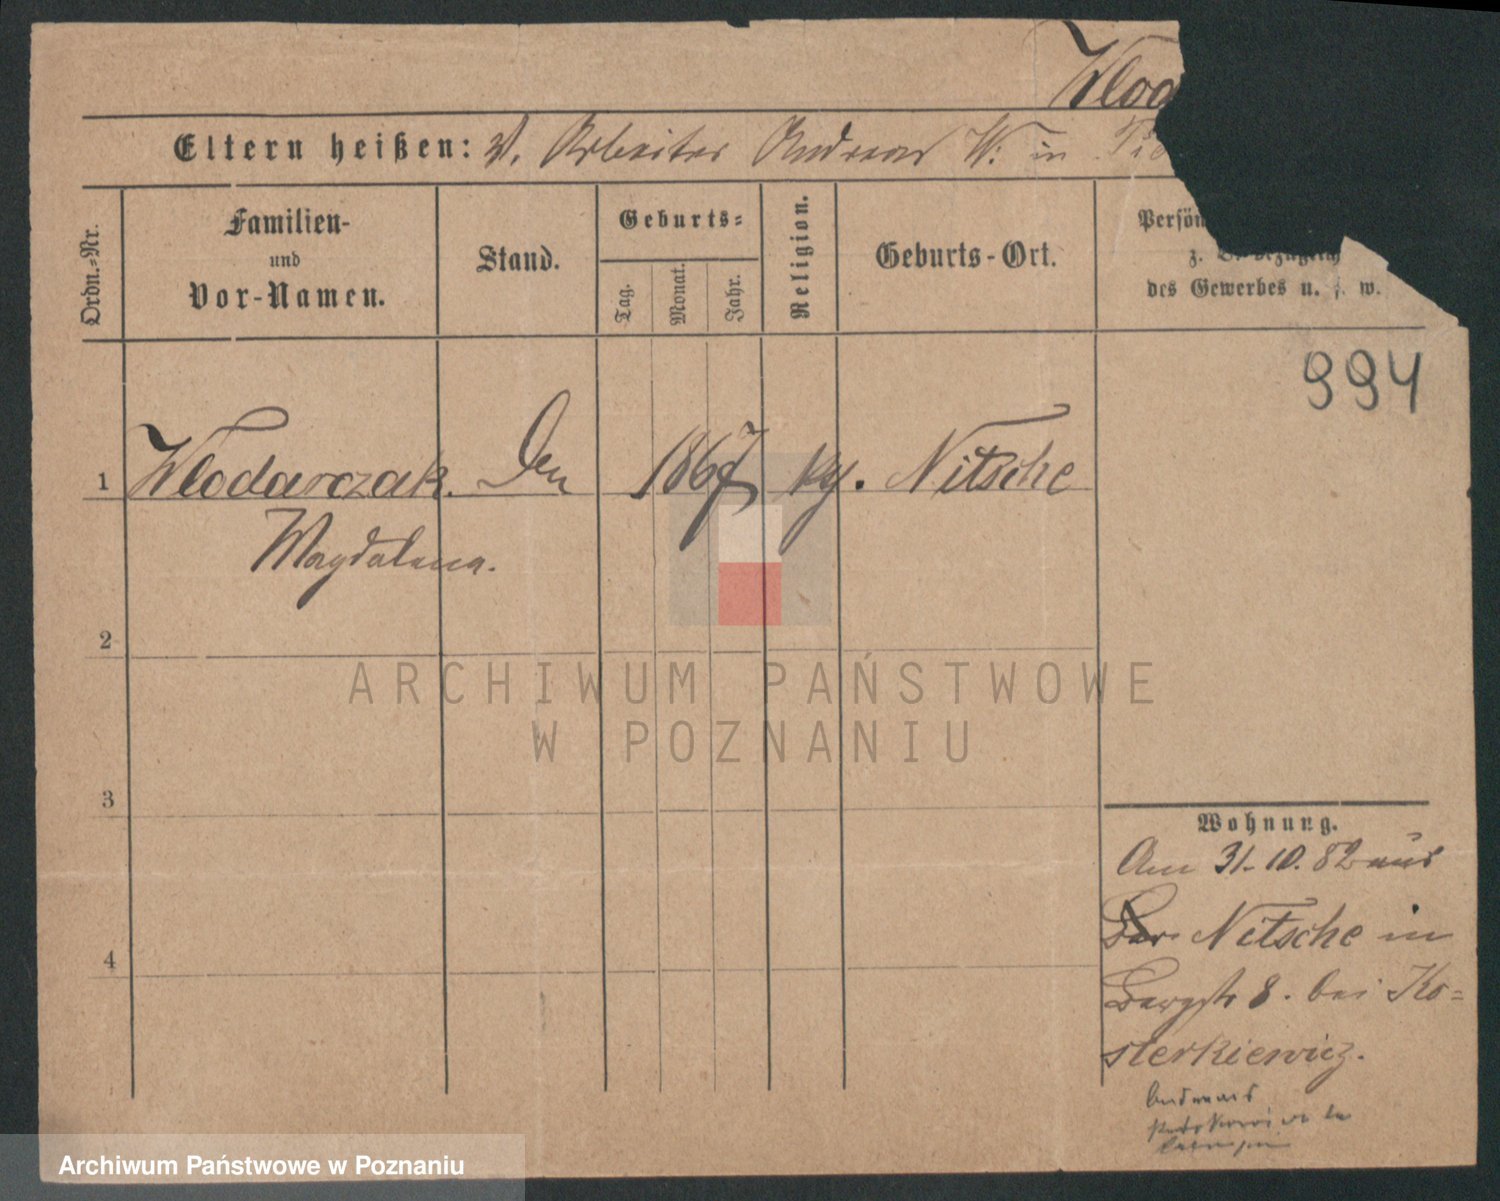 Wlod
Eltern heißen: V. Arbeiter Andreas W. in
Ordn.-Nr.
Familien-
und
Vor-Namen.
Stand.
Geburts-
Tag.
Monat.
Jahr.
Religion.
Geburts-Ort.
Persön
z. B. bezüglich
des Gewerbes u. s. w.
994
1 Wlodarczak. 1867 kg. Nitsche
Magdalena.
2
3
4
Wohnung.
Am 31.10.82 aus
Nitsche in
Bergstr 8. bei Ko=
sterkiewicz.
ARCHIWUM PAŃSTWOWE
W POZNANIU
Archiwum Państwowe w Poznaniu